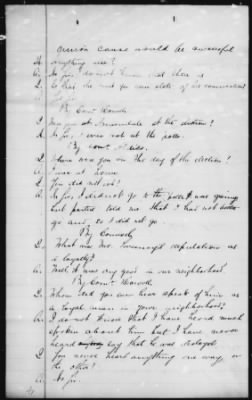 Union cause would be successful
Q. anything else?
A. No sir, I do not know that there is.
Q. Is that the
No sir.
By Com'r Howell
Q. Was you at at the election?
A. No Sir, I was not at the polls.
By Com'r Aldis.
Q. Where was you on the day of the election?
A. I was at home.
Q. You did not vote?
A. No sir, I did not go to the polls I was going
but parties told me that I had not better
go and, so I did not go.
By Connolly
Q. What was Mr. reputation as
to loyalty?
A. Well it was very good in our neighborhood
By Com'r Howell
Q. Whom did you ever hear speak of him as
a loyal man in your neighborhood?
A. I do not know that I have heard much
spoken about him but I have never
heard say that he was disloyal.
Q. You never heard anything one way or
the other?
A. No Sir.